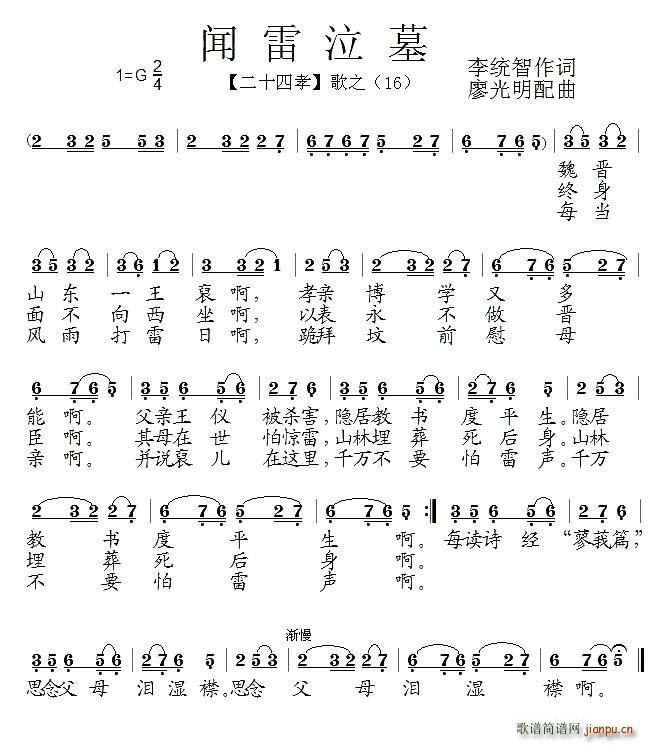 闻雷泣墓
1=G 2/4 【二十四孝】歌之（16） 李统智作词
廖光明配曲
(2 32 5 53 | 2 32 2 27 | 67 67 67 67 | 6 76 5) | 35 32
魏晋
终身
每当
35 32 | 36 12 | 3 321 | 2 53 | 2 32 27 | 6 76 | 5 27
山东一王裒啊，孝亲博学又多
面不向西坐啊，以表永不做晋
风雨打雷日啊，跪拜坟前慰母
6 76 5 | 35 6 56 | 2 76 | 2 53 | 2 32 27 | 6 76 5 | 2 53
能啊。父亲王仪被杀害，隐居教书度平生。隐居
臣啊。其母在世怕惊雷，山林埋葬死后身。山林
亲啊。并说裒儿在这里，千万不要怕雷声。千万
2 32 27 | 6 76 56 | 27 6 5 :| 35 6 56 | 2 76
教书度平生啊。每读诗经“蓼莪篇，”
埋葬死后身啊。
不要怕雷声啊。
渐慢
35 6 56 | 27 6 5 | 2 53 | 2 32 27 | 6 76 56 | 6 76 5 |
思念父母泪湿襟。思念父母泪湿襟啊。
歌谱简谱网
jianpu.cn